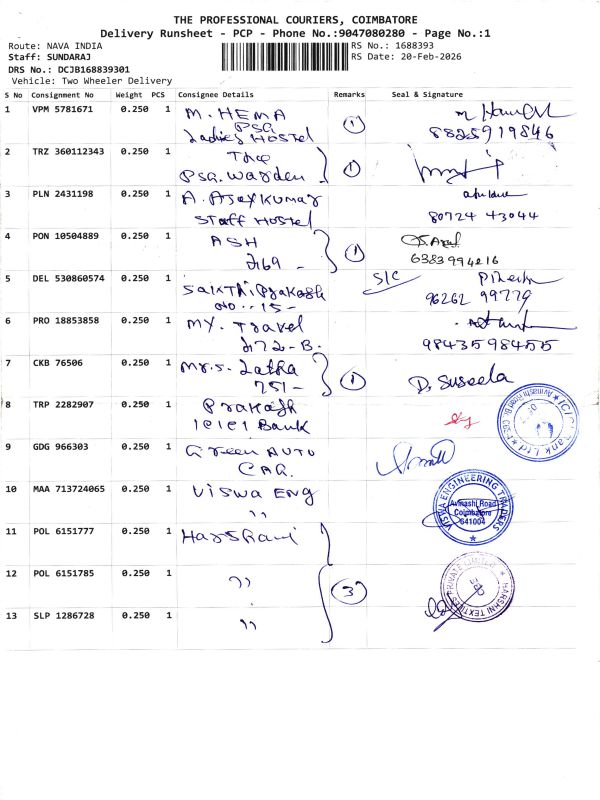 THE PROFESSIONAL COURIERS, COIMBATORE
Delivery Runsheet - PCP - Phone No.:9047080280 - Page No.:1
Route: NAVA INDIA
RS No.: 1688393
Staff: SUNDARAJ
RS Date: 20-Feb-2026
DRS No.: DCJB168839301
Vehicle: Two Wheeler Delivery
S No Consignment No Weight PCS Consignee Details Remarks Seal & Signature
1 VPM 5781671 0.250 1 M. HEMA
PSG
Ladies Hostel
1
8825919846
2 TRZ 360112343 0.250 1 The
PSG. Warden
1
3 PLN 2431198 0.250 1 A. Ajaykumar
Staff Hostel
80724 43044
4 PON 10504889 0.250 1 ASH
1
6383994216
5 DEL 530860574 0.250 1 Sakthi Prakash
NO. 15 -
S/C
96262 99779
6 PRO 18853858 0.250 1 MY. Travel
2172-B.
9843598455
7 CKB 76506 0.250 1 Mrs. Latha
751-
1
D. Suseela
8 TRP 2282907 0.250 1 Prakash
ICICI Bank
9 GDG 966303 0.250 1 Green AUTO
CAG.
10 MAA 713724065 0.250 1 Viswa ENG
"
VISWA ENGINEERING TRADERS
Avinashi Road
Coimbatore
641004
11 POL 6151777 0.250 1 Harshani
12 POL 6151785 0.250 1 "
3
HARSHNI TEXTILES PRIVATE LIMITED
13 SLP 1286728 0.250 1 "